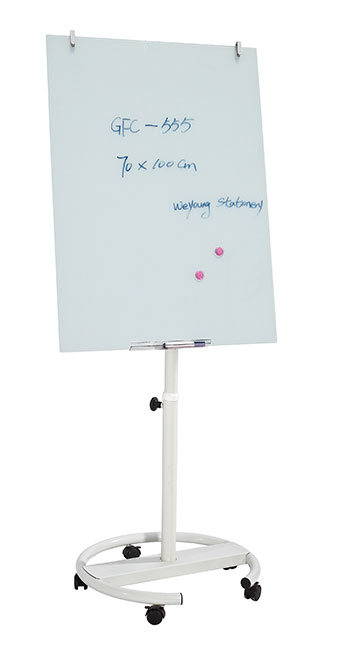 GFC-555
70 x 100cm
weyoung stationery